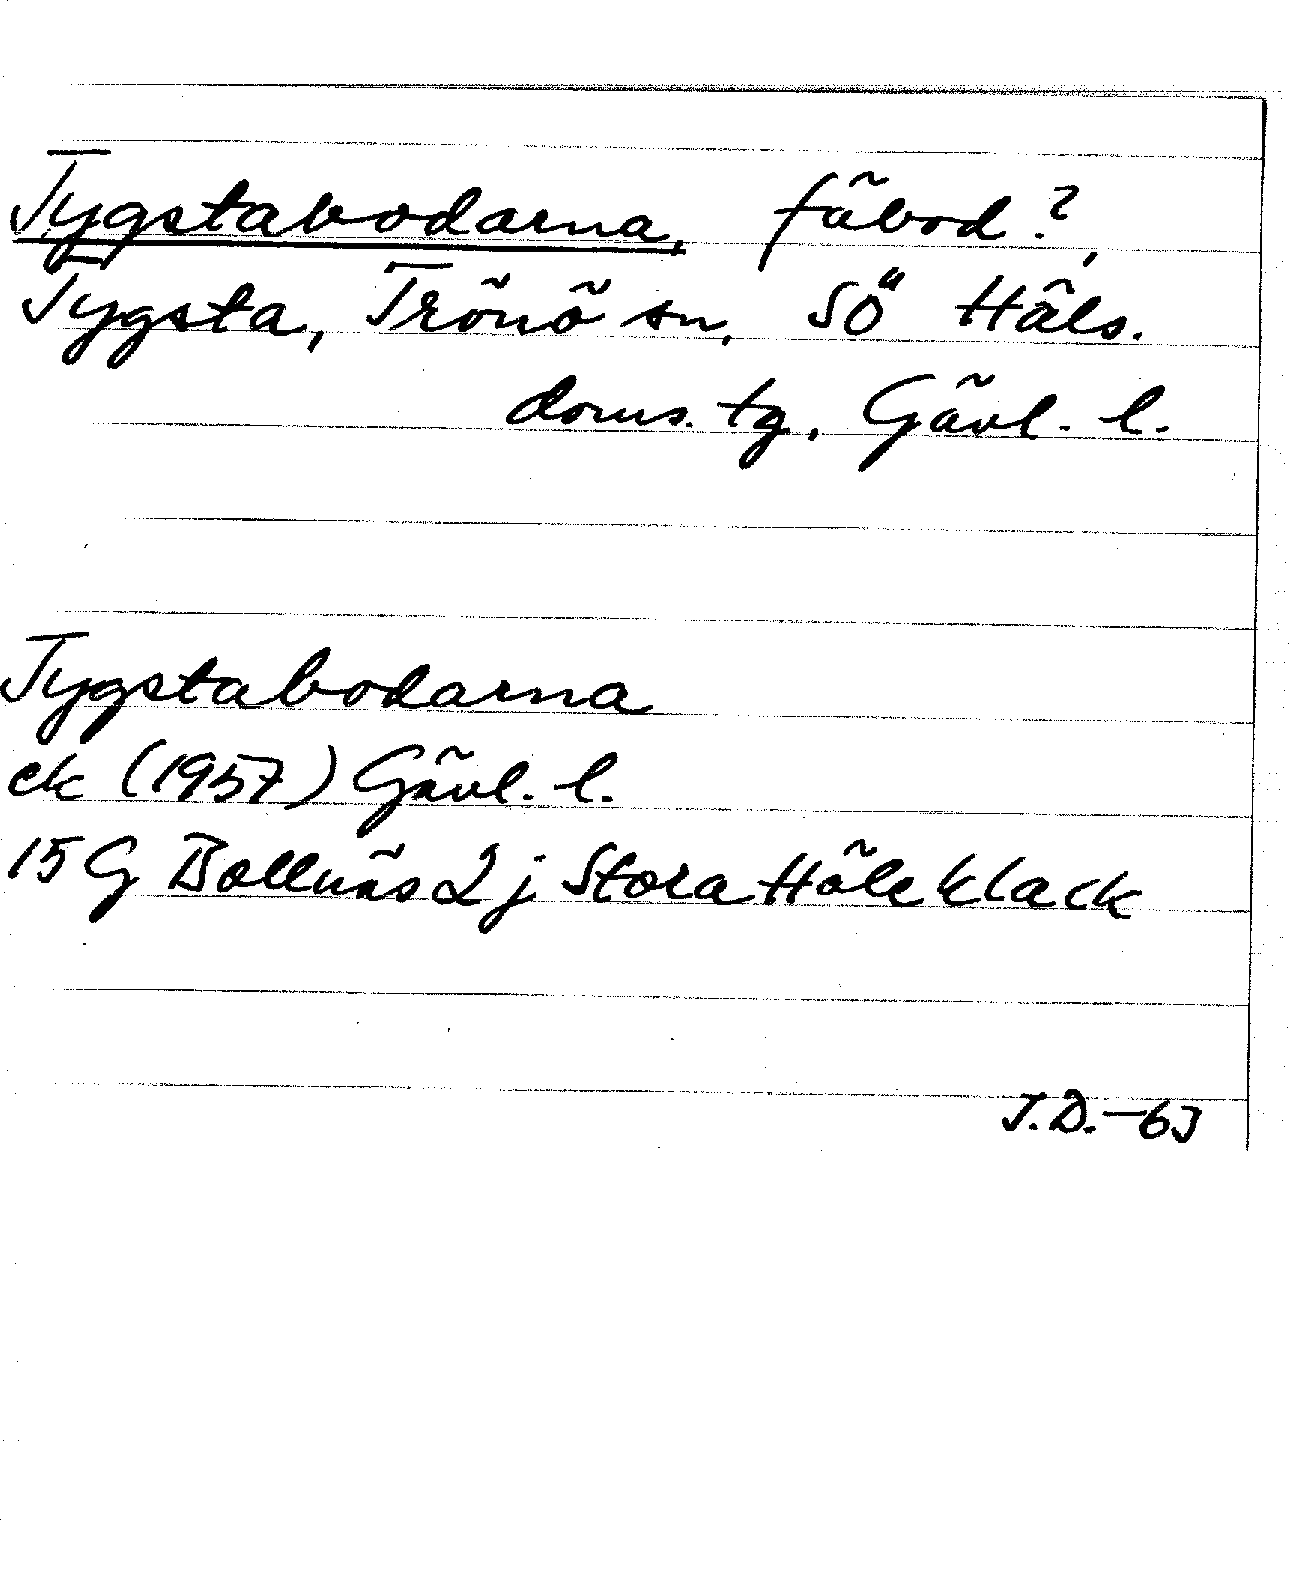 Tygstabodarna, fäbod?,
Tygsta, Trönö sn, SÖ Häls.
doms. tg, Gävl. l.
Tygstabodarna
ek (1957) Gävl. l.
15 G Bollnäs 2 j Stora Höleklack
J.D.-63